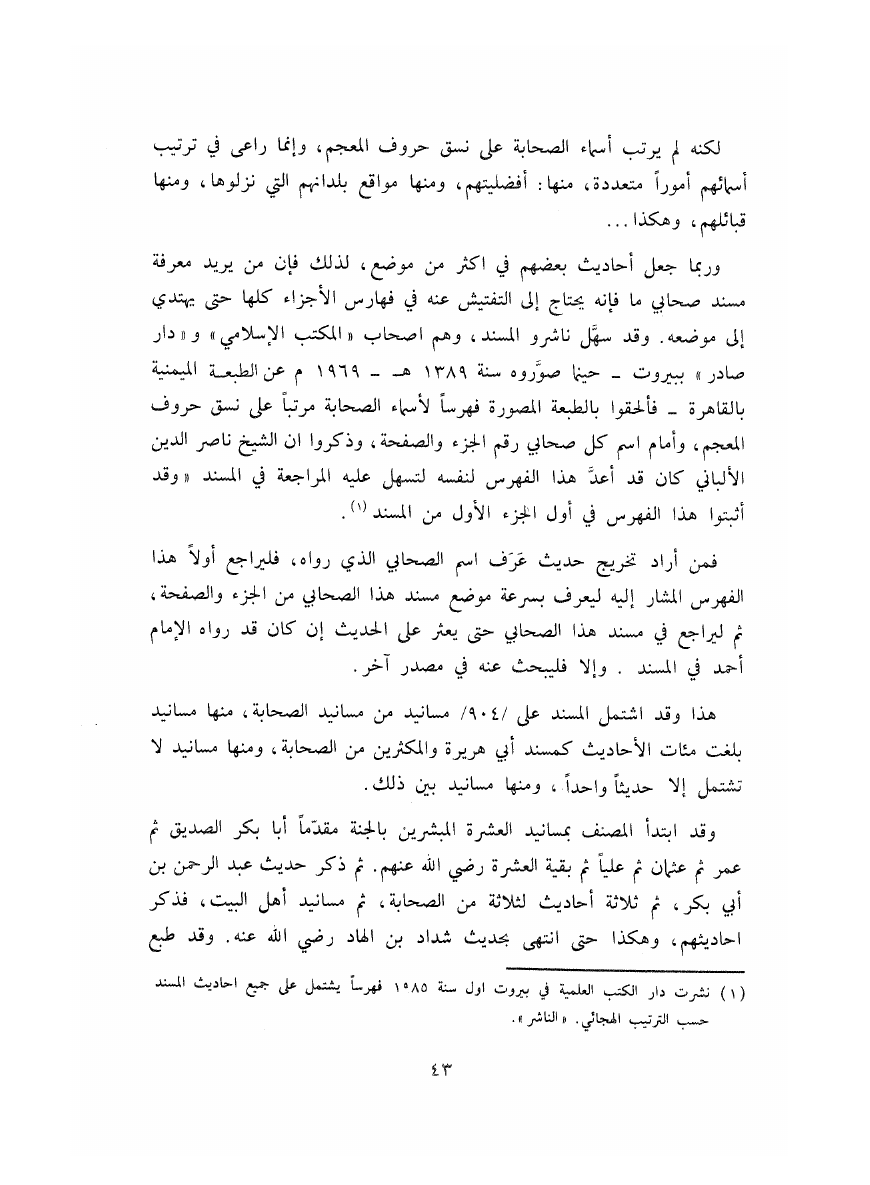 لكنه لم يرتب أسماء الصحابة على نسق حروف المعجم، وإنما راعى في ترتيب
أسمائهم أموراً متعددة، منها: أفضليتهم، ومنها مواقع بلدانهم التي نزلوها، ومنها
قبائلهم، وهكذا...
وربما جعل أحاديث بعضهم في اكثر من موضع، لذلك فإن من يريد معرفة
مسند صحابي ما فإنه يحتاج إلى التفتيش عنه في فهارس الأجزاء كلها حتى يهتدي
إلى موضعه. وقد سهَّل ناشرو المسند، وهم اصحاب «المكتب الإسلامي» و«دار
صادر» ببيروت - حينما صوَّروه سنة ١٣٨٩ هـ - ١٩٦٩ م عن الطبعة الميمنية
بالقاهرة - فألحقوا بالطبعة المصورة فهرساً لأسماء الصحابة مرتباً على نسق حروف
المعجم، وأمام اسم كل صحابي رقم الجزء والصفحة، وذكروا ان الشيخ ناصر الدين
الألباني كان قد أعدَّ هذا الفهرس لنفسه لتسهل عليه المراجعة في المسند «وقد
أثبتوا هذا الفهرس في أول الجزء الأول من المسند (١).
فمن أراد تخريج حديث عَرَف اسم الصحابي الذي رواه، فليراجع أولاً هذا
الفهرس المشار إليه ليعرف بسرعة موضع مسند هذا الصحابي من الجزء والصفحة،
ثم ليراجع في مسند هذا الصحابي حتى يعثر على الحديث إن كان قد رواه الإمام
أحمد في المسند . وإلا فليبحث عنه في مصدر آخر.
هذا وقد اشتمل المسند على /٩٠٤/ مسانيد من مسانيد الصحابة، منها مسانيد
بلغت مئات الأحاديث كمسند أبي هريرة والمكثرين من الصحابة، ومنها مسانيد لا
تشتمل إلا حديثاً واحداً، ومنها مسانيد بين ذلك.
وقد ابتدأ المصنف بمسانيد العشرة المبشرين بالجنة مقدّماً أبا بكر الصديق ثم
عمر ثم عثمان ثم علياً ثم بقية العشرة رضي الله عنهم. ثم ذكر حديث عبد الرحمن بن
أبي بكر، ثم ثلاثة أحاديث لثلاثة من الصحابة، ثم مسانيد أهل البيت، فذكر
احاديثهم، وهكذا حتى انتهى بحديث شداد بن الهاد رضي الله عنه. وقد طبع
(١) نشرت دار الكتب العلمية في بيروت اول سنة ١٩٨٥ فهرساً يشتمل على جميع احاديث المسند
حسب الترتيب الهجائي. «الناشر».
٤٣